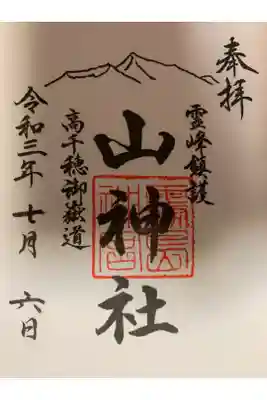 奉拝
霊峰鎮護
山神社
高千穂御嶽道
令和三年七月六日